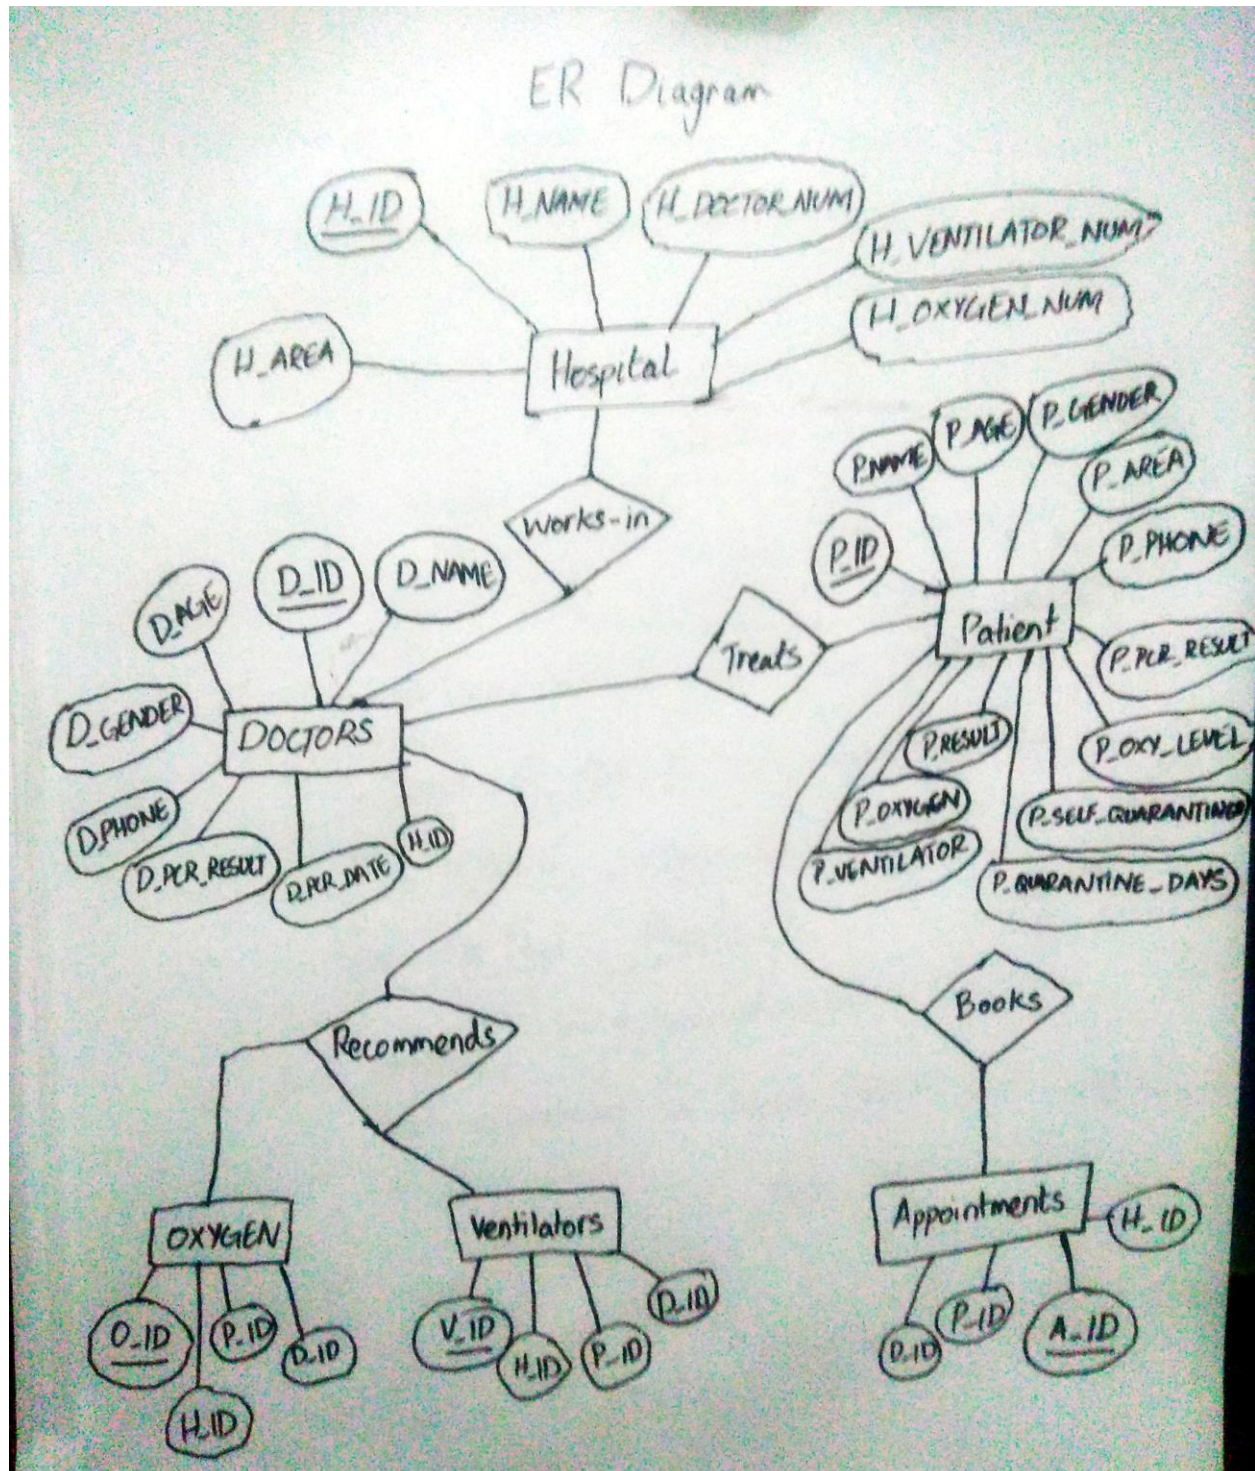 ER Diagram
H_ID
H_NAME
H_DOCTOR_NUM
H_VENTILATOR_NUM
H_OXYGEN_NUM
H_AREA
Hospital
Works-in
P_NAME
P_AGE
P_GENDER
P_AREA
P_PHONE
P_ID
Patient
P_PCR_RESULT
P_OXY_LEVEL
P_SELF_QUARANTINED
P_QUARANTINE_DAYS
P_RESULT
P_OXYGEN
P_VENTILATOR
Treats
D_AGE
D_ID
D_NAME
D_GENDER
DOCTORS
D_PHONE
D_PCR_RESULT
D_PCR_DATE
H_ID
Recommends
Books
OXYGEN
O_ID
H_ID
P_ID
D_ID
Ventilators
V_ID
H_ID
P_ID
D_ID
Appointments
H_ID
D_ID
P_ID
A_ID